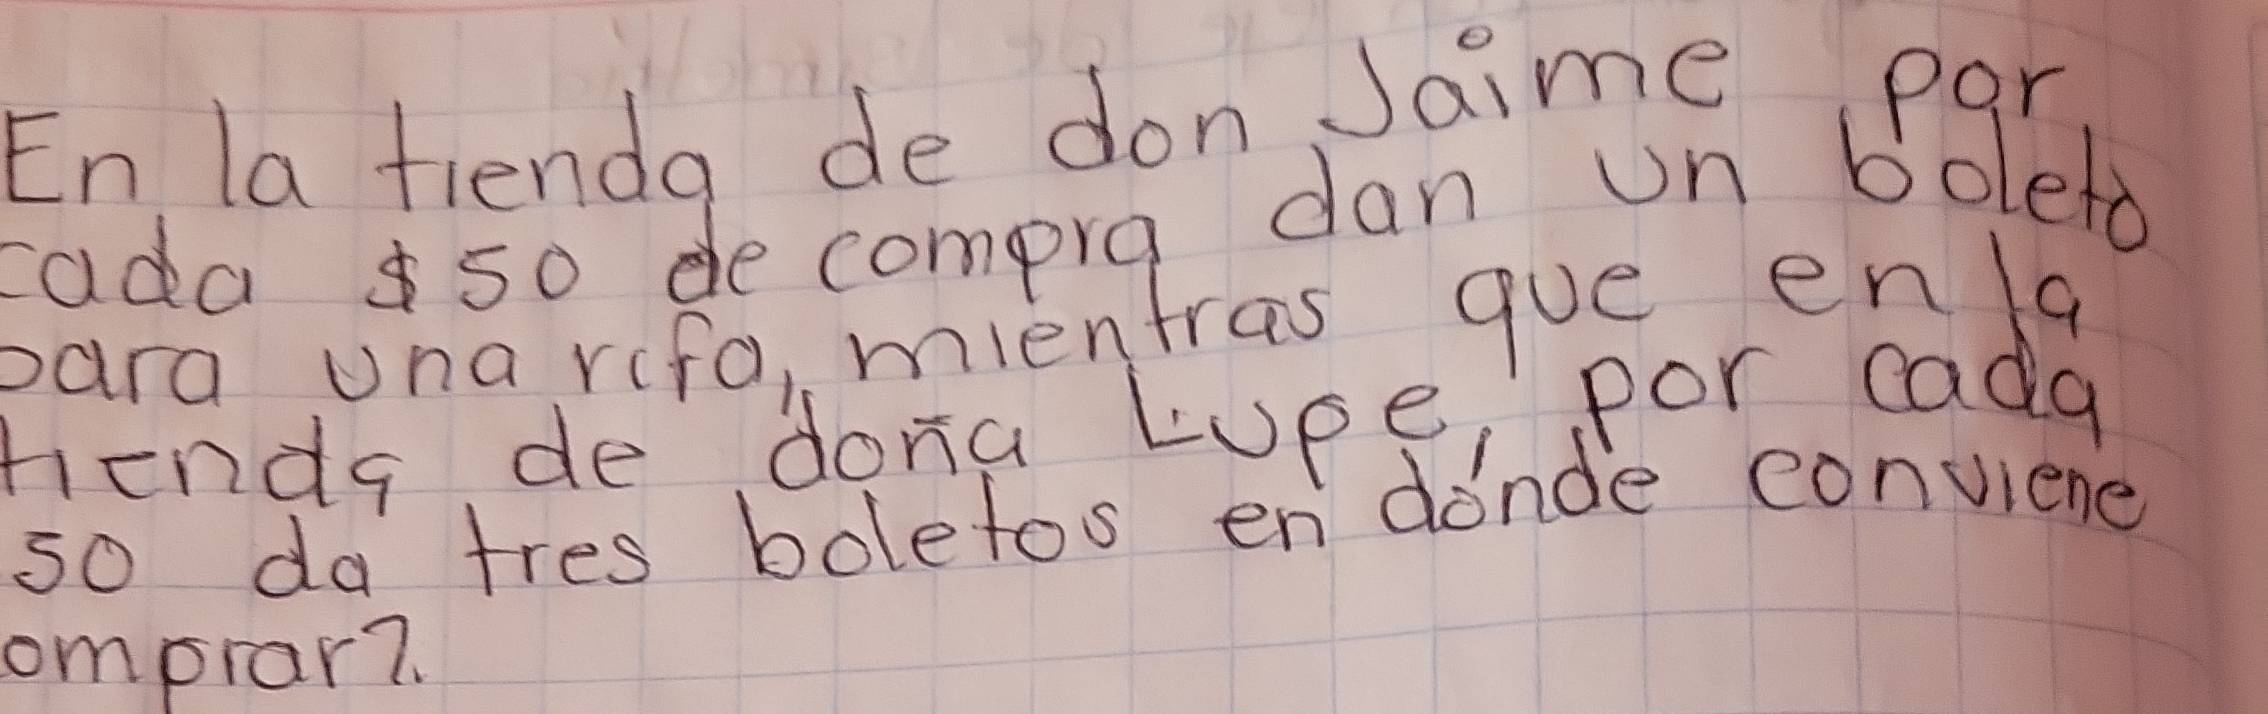 En la tienda de don Jaime por
cada $50 de compra dan un boleto
para una rifa, mientras que en la
tienda de doña Lupe, por cada
50 da tres boletos en dónde conviene
omprar?